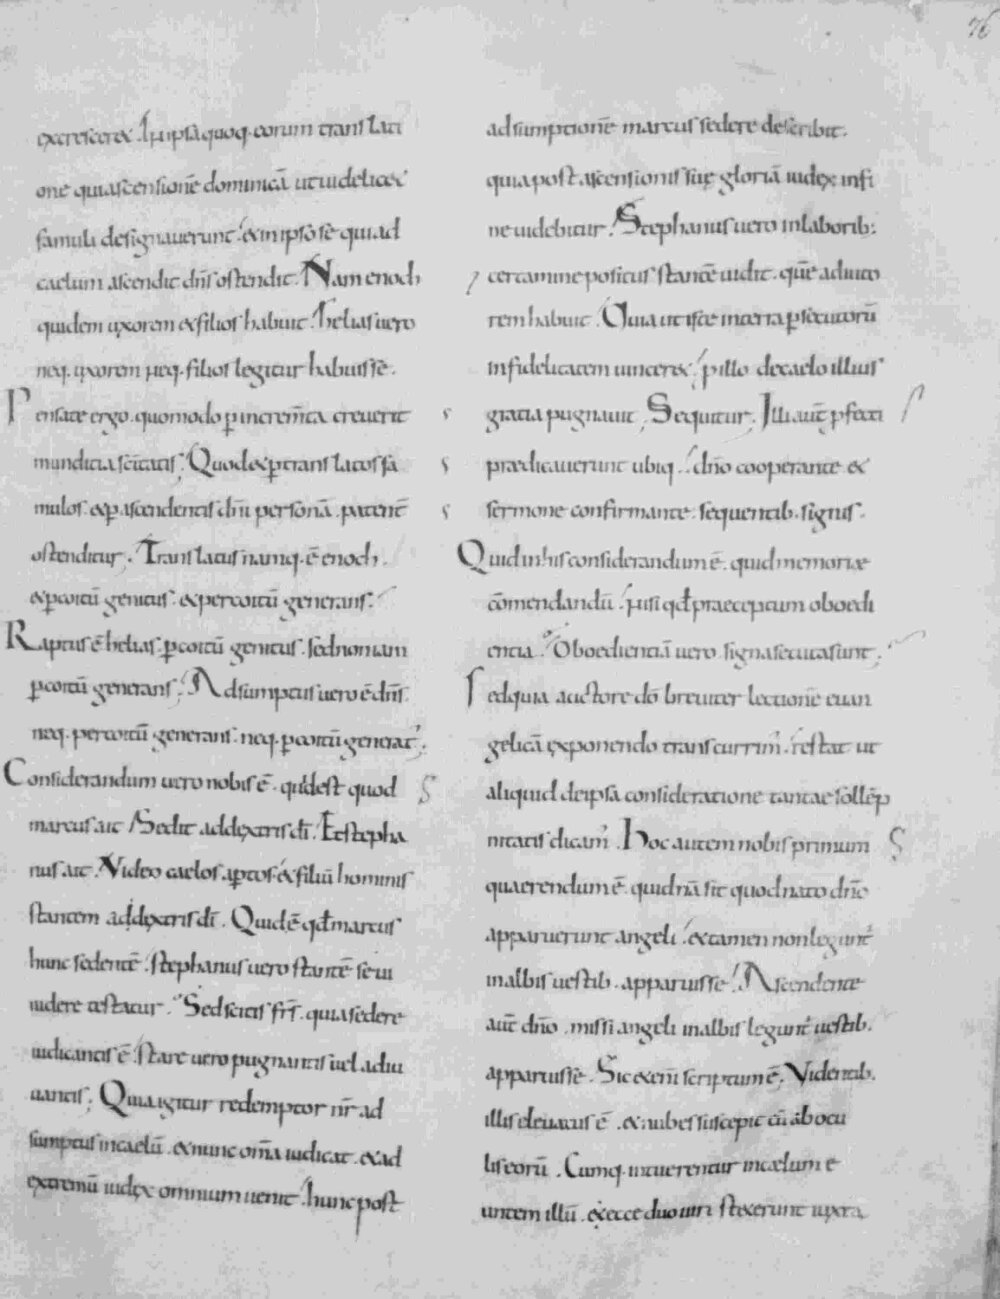 76
excresceret. In ipsa quoq. eorum translati
one qui ascensionē dominicā ut videlicet
famuli designauerunt. et in ipso se qui ad
caelum ascendit dn̄s ostendit. Nam enoch
quidem uxorem et filios habuit. helias uero
neq. uxorem neq. filios legitur habuisse.
Pensate ergo. quomodo p increm̄ta creuerit
munditia sc̄itatis; Quod et p translatos fa
mulos. et p ascendentis dn̄i personā. patent̄
ostenditur; Translatus namq. ē enoch.
et p coitū genitus. et per coitū generans.
Raptus ē helias. p coitū genitus. sed non iam
p coitū generans; Adsumptus uero ē dn̄s.
neq. per coitū generans. neq. p coitū generat';
Considerandum uero nobis ē. quid est quod
marcus ait. Sedit ad dextris dī. Et stepha
nus ait. Video caelos aptos. et filiū hominis
stantem ad dextris dī. Quid ē qđ marcus
hunc sedentē. stephanus uero stantē se ui
uidere testatur. Sed scitis fr̄s. quia sedere
iudicantis ē. stare uero pugnantis uel adiu
uantis; Quia igitur redemptor nr̄ ad
sumptus in caelū. et nunc om̄a iudicat. et ad
extremū iudex omnium uenit. hunc post
adsumptionē marcus sedere describit.
quia post ascensionis suę gloriā iudex in fi
ne uidebitur. Stephanus uero in laborib:
certamine positus stantē uidit. quē adiuto
rem habuit. Quia ut iste in terra psecutorū
infidelitatem uinceret. p illo de caelo illius
gratia pugnauit; Sequitur; Illi aut̄ pfecti
praedicauerunt ubiq. dn̄o cooperante et
sermone confirmante. sequentib. signis.
Quid in his considerandum ē. quid memoriae
cōmendandū. nisi qđ praeceptum oboedi
entia. Oboedientiā uero signa secuta sunt;
Sed quia auctore dō breuiter lectionē euan
gelicā exponendo transcurrim'. restat ut
aliquid de ipsa consideratione tantae sollēp
nitatis dicam'. Hoc autem nobis primum
quaerendum ē. quidnā sit quod nato dn̄o
apparuerunt angeli. et tamen non legunt'
in albis uestib. apparuisse. Ascendente
aut̄ dn̄o. missi angeli in albis legunt' uestib.
apparuisse. Sic eteni scriptum ē; Videntib.
illis eleuatus ē. et nubes suscepit eū ab ocu
lis eorū. Cumq. intuerentur in caelum e
untem illū. et ecce duo uiri steterunt iuxta